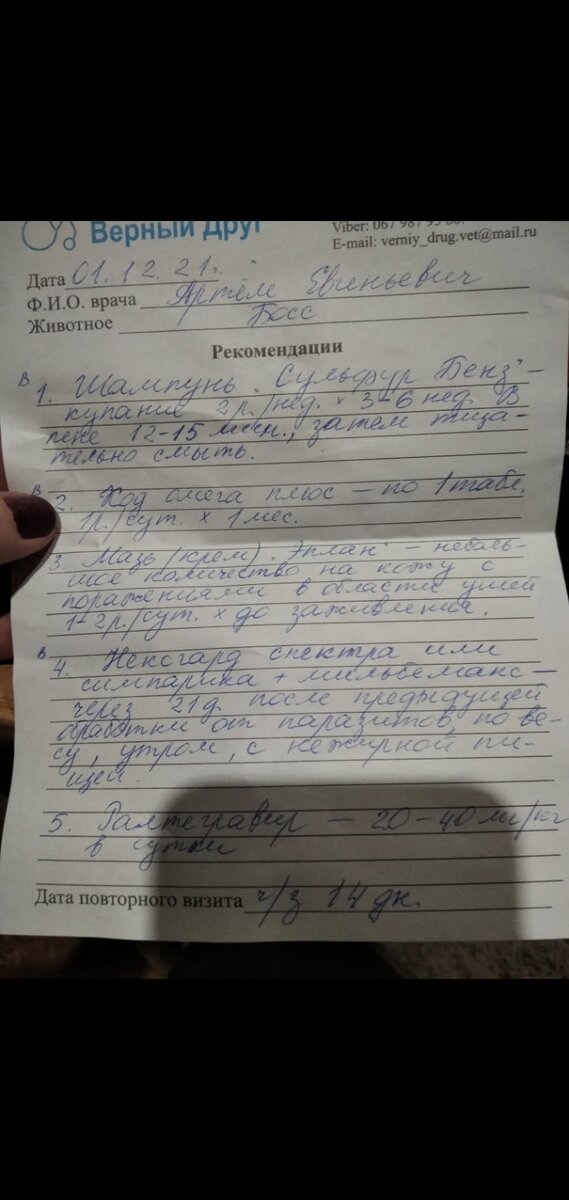 Верный Друг
E-mail: verniy_drug.vet@mail.ru
Дата 01.12.21г.
Ф.И.О. врача Артём Евгеньевич
Животное Босс
Рекомендации
В 1. Шампунь „Сульфур Бенз" –
купание 2р./нед. х 3-6 нед. В
пене 12-15 мин., затем тща-
тельно смыть.
В 2. Ход омега плюс – по 1 табл.
1р./сут. х 1 мес.
3. Мазь/(крем) „Эплан" – неболь-
шое количество на кожу с
поражениями в области ушей
1-2р./сут. х до заживления.
В 4. Нексгард спектра или
симпарика + мильбемакс –
через 21д. после предыдущей
обработки от паразитов, по ве-
су, утром, с нежирной пи-
щей.
5. Ралтегравир – 20-40 мг/кг
в сутки
Дата повторного визита ч/з 14 дн.